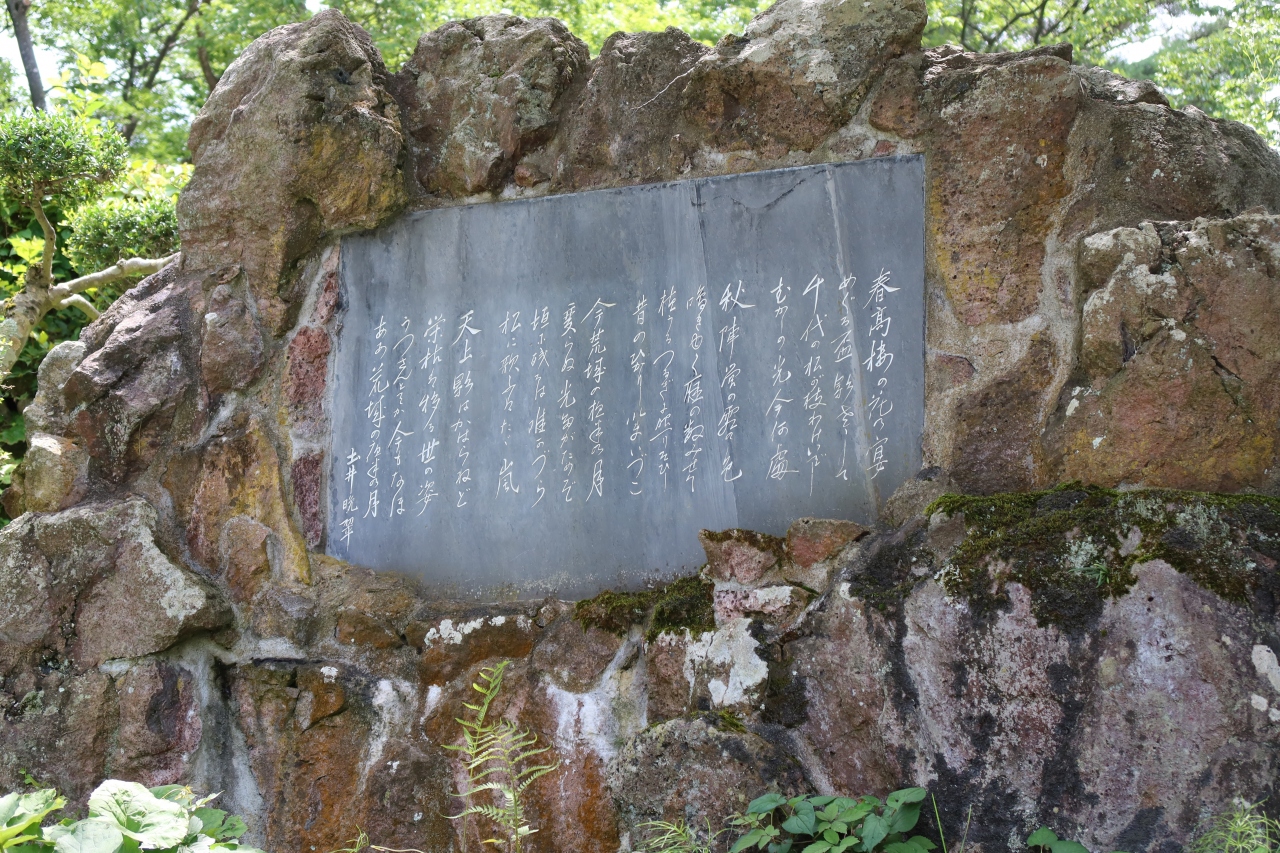 春高楼の花の宴
めぐる盃影さして
千代の松が枝わけいでし
むかしの光今何處
秋陣営の霜の色
鳴きゆく雁の数みせて
植うるつるぎに照りそひし
昔のひかり今いづこ
今荒城の夜半の月
変らぬ光たがためぞ
垣に残るは唯かづら
松に歌ふはただ嵐
天上影はかはらねど
栄枯は移る世の姿
うつさんとてか今もなほ
ああ荒城の夜半の月
土井晩翠